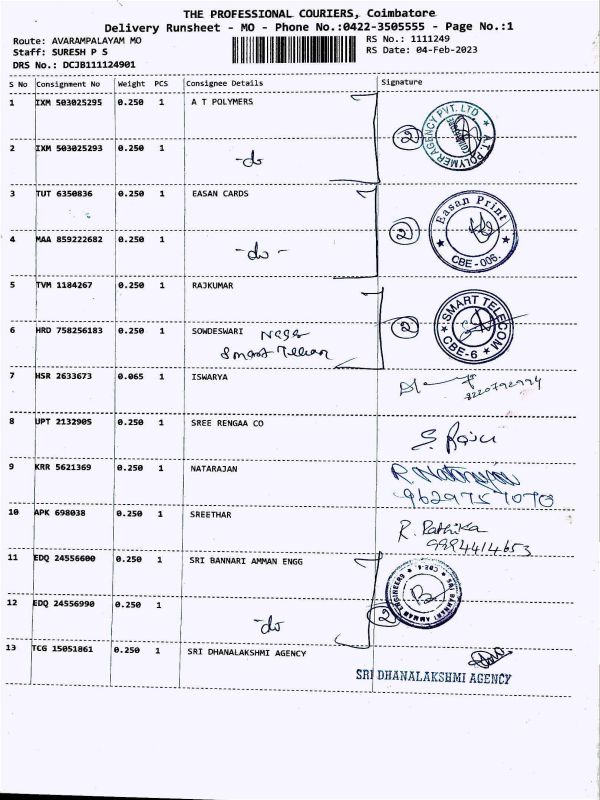 THE PROFESSIONAL COURIERS, Coimbatore
Delivery Runsheet - MO - Phone No.:0422-3505555 - Page No.:1
Route: AVARAMPALAYAM MO
RS No.: 1111249
Staff: SURESH P S
RS Date: 04-Feb-2023
DRS No.: DCJB111124901
S No Consignment No Weight PCS Consignee Details Signature
1 IXM 503025295 0.250 1 A T POLYMERS
2 A.T. POLYMER AGENCY PVT. LTD COIMBATORE
2 IXM 503025293 0.250 1 -do
3 TUT 6350836 0.250 1 EASAN CARDS
2 Easan Print CBE-006.
4 MAA 859222682 0.250 1 -do-
5 TVM 1184267 0.250 1 RAJKUMAR
2 SMART TELECOM CBE-6
6 HRD 758256183 0.250 1 SOWDESWARI
Smart
7 HSR 2633673 0.065 1 ISWARYA
8 UPT 2132905 0.250 1 SREE RENGAA CO
S. Raju
9 KRR 5621369 0.250 1 NATARAJAN
R Natarajan
9629757070
10 APK 698038 0.250 1 SREETHAR
R. Rathika
9994414653
11 EDQ 24556600 0.250 1 SRI BANNARI AMMAN ENGG
2 SRI BANNARI AMMAN ENGINEERS CBE-4
12 EDQ 24556990 0.250 1 -do
13 TCG 15051861 0.250 1 SRI DHANALAKSHMI AGENCY
SRI DHANALAKSHMI AGENCY